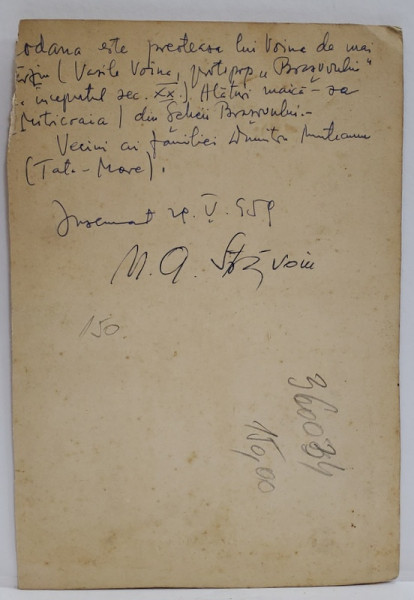 odana este preoteasa lui Voina de mai
târziu (Vasile Voina, protopop „Brașovului"
începutul sec. XX.) Alături maică-sa
din Șcheii Brașovului.-
Vecini ai familiei Dumitru Munteanu
(Tata-Mare).
Însemnat 29. V. 959
150.
360034
150,00